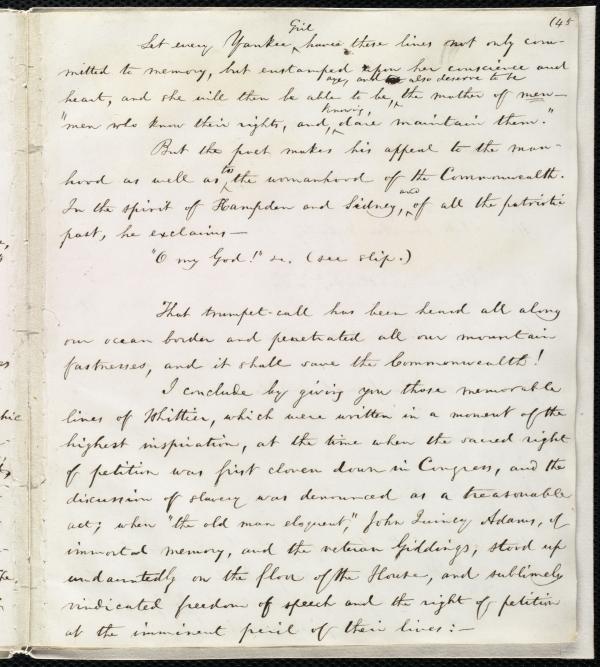 (45
Girl
Let every Yankee, have these lines not only com-
mitted to memory, but enstamped upon her conscience and
aye, and also deserve to be
heart, and she will then be able to be, ‸ the mother of men—
knowing,
"men who know their rights, and, ‸ dare maintain them."
But the poet makes his appeal to the man-
to
hood as well as ‸ the womanhood of the Commonwealth.
and
In the spirit of Hampden and Sidney, ‸ of all the patriotic
past, he exclaims—
"O my God!" &c. (see slip.)
That trumpet-call has been heard all along
our ocean border and penetrated all our mountain
fastnesses, and it shall save the Commonwealth!
I conclude by giving you those memorable
lines of Whittier, which were written in a moment of the
highest inspiration, at the time when the sacred right
of petition was first cloven down in Congress, and the
discussion of slavery was denounced as a treasonable
act; when "the old man eloquent," John Quincy Adams, of
immortal memory, and the veteran Giddings, stood up
undauntedly on the floor of the House, and sublimely
vindicated freedom of speech and the right of petition
at the imminent peril of their lives:—